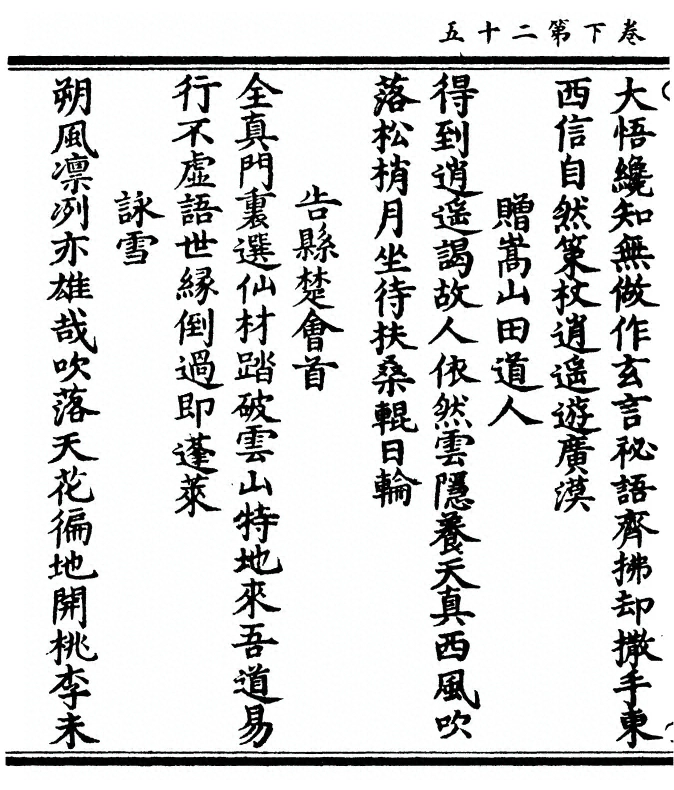 卷下第二十五
大悟纔知無做作玄言祕語齊拂却撒手東
西信自然策杖逍遥遊廣漠
贈嵩山田道人
得到逍遥謁故人依然雲隱養天真西風吹
落松梢月坐待扶桑輥日輪
告縣楚會首
全真門裏選仙材踏破雲山特地來吾道易
行不虛語世緣倒過即蓬萊
詠雪
朔風凛冽亦雄哉吹落天花徧地開桃李未